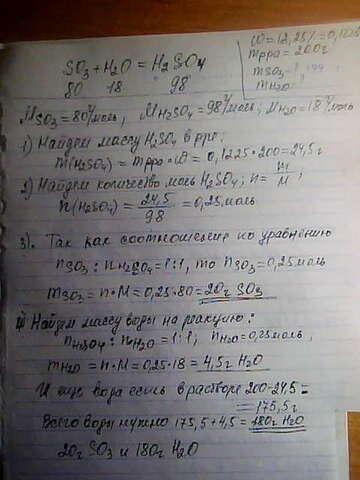 SO₃ + H₂O = H₂SO₄
80 18 98
ω = 12,25% = 0,1225
mрра = 200г
mSO₃ = ?
mH₂O = ?
MSO₃ = 80г/моль, MH₂SO₄ = 98г/моль; MH₂O = 18г/моль
1) Найдем массу H₂SO₄ в рре:
m(H₂SO₄) = mрра · ω = 0,1225 · 200 = 24,5г
2) Найдем количество моль H₂SO₄; n = m/M;
n(H₂SO₄) = 24,5/98 = 0,25моль
3). Так как соотношение по уравнению
nSO₃ : nH₂SO₄ = 1:1, то nSO₃ = 0,25моль
mSO₃ = n · M = 0,25 · 80 = 20г SO₃
Найдем массу воды на реакцию:
nH₂SO₄ : nH₂O = 1:1, nH₂O = 0,25моль,
mH₂O = n · M = 0,25 · 18 = 4,5г H₂O
И еще вода есть в растворе 200-24,5=
= 175,5г
Всего воды нужно 175,5 + 4,5 = 180г H₂O
20г SO₃ и 180г H₂O